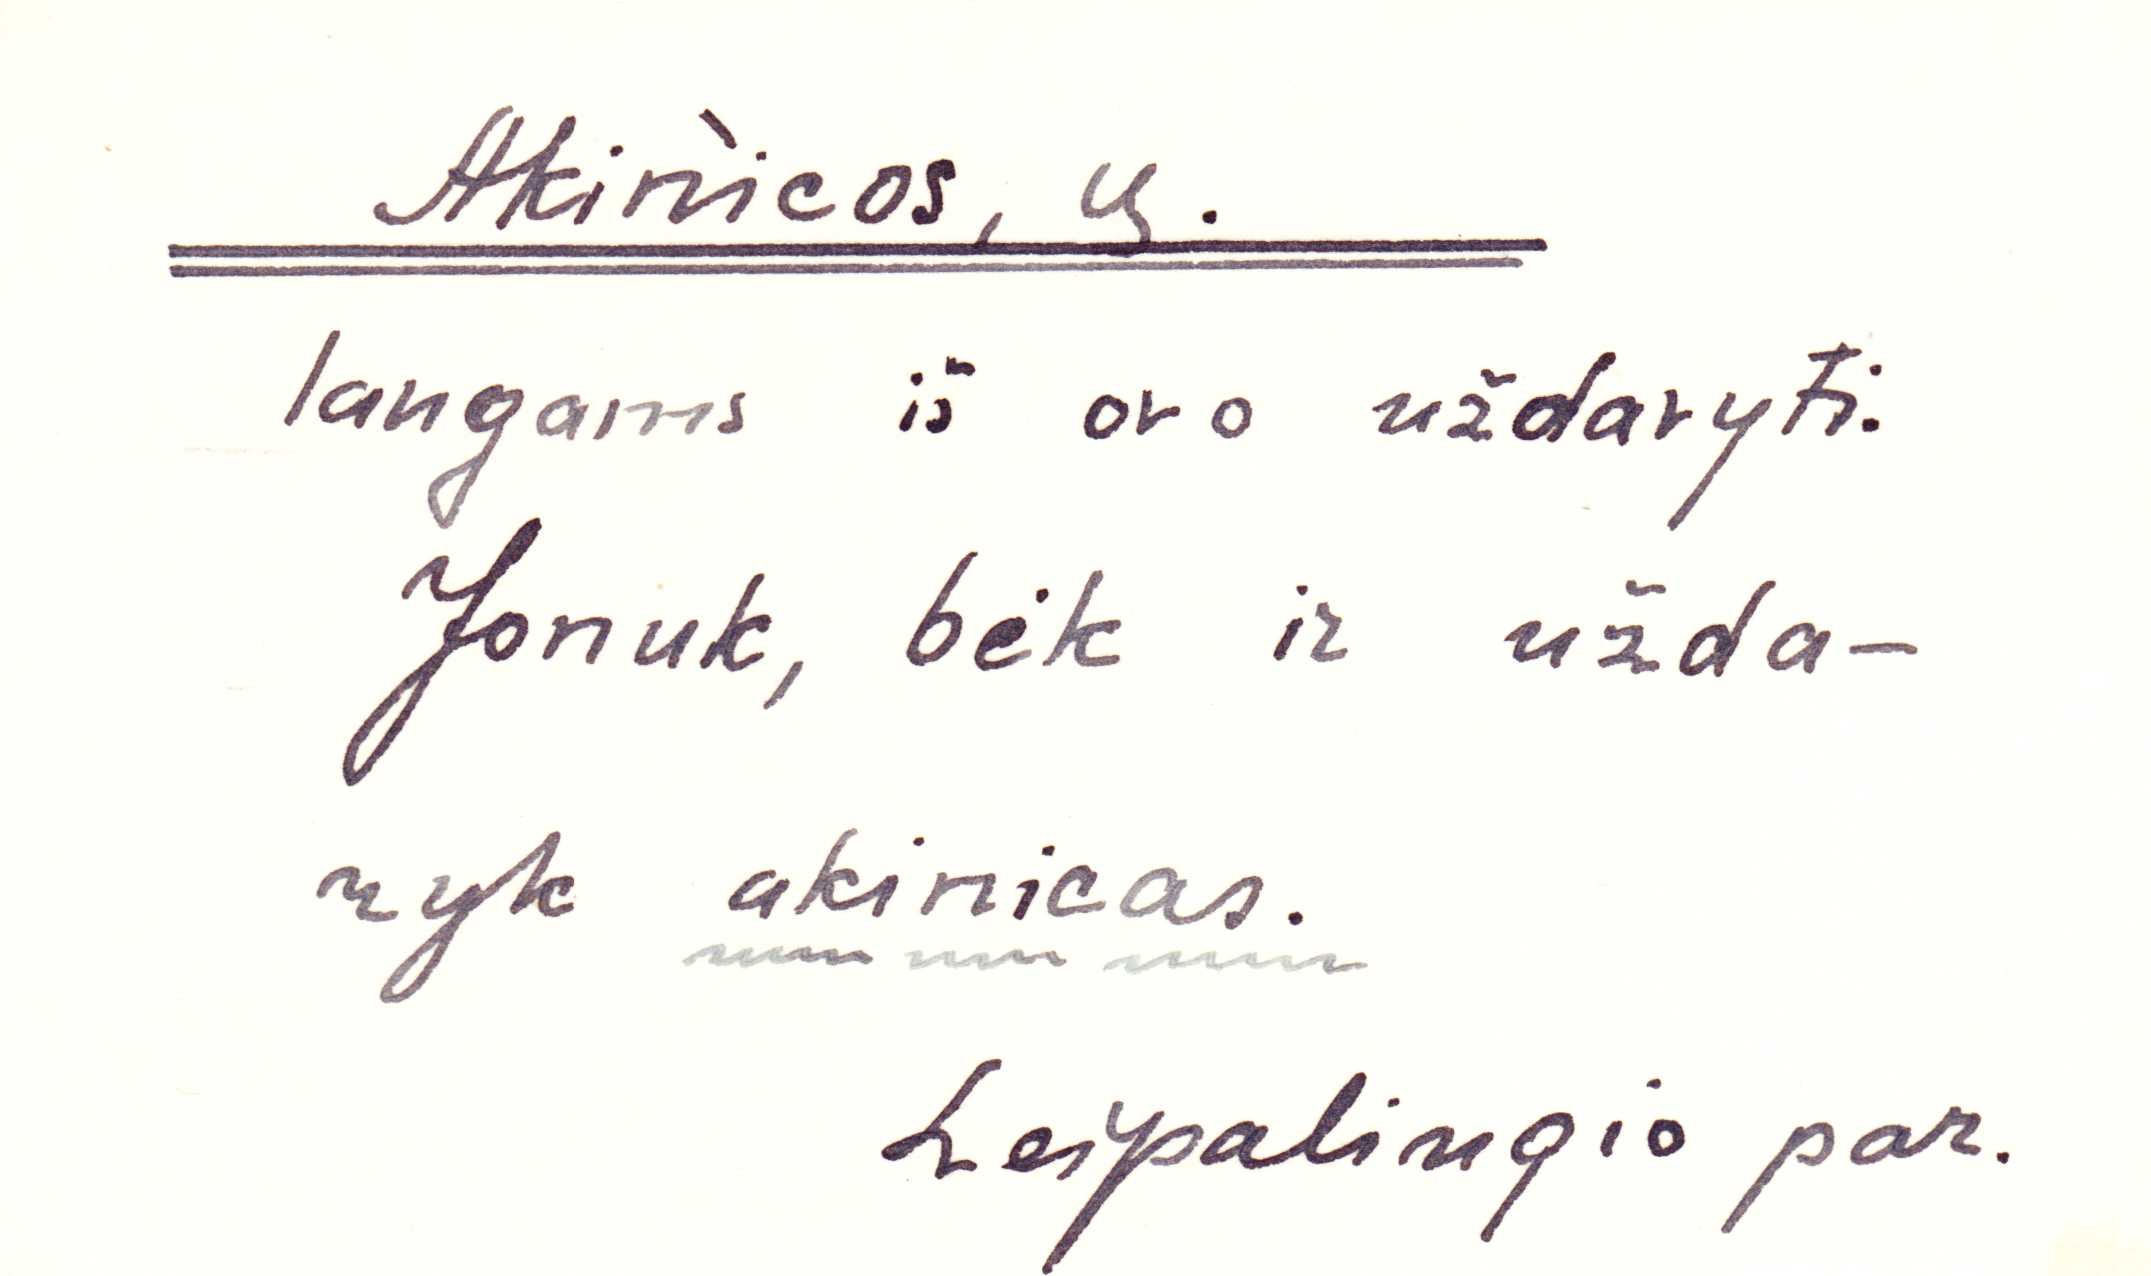 Akinìcos, ų.
langams iš oro uždaryti.
Jonuk, bėk ir užda-
ryk akinicas.
Leipalingio par.